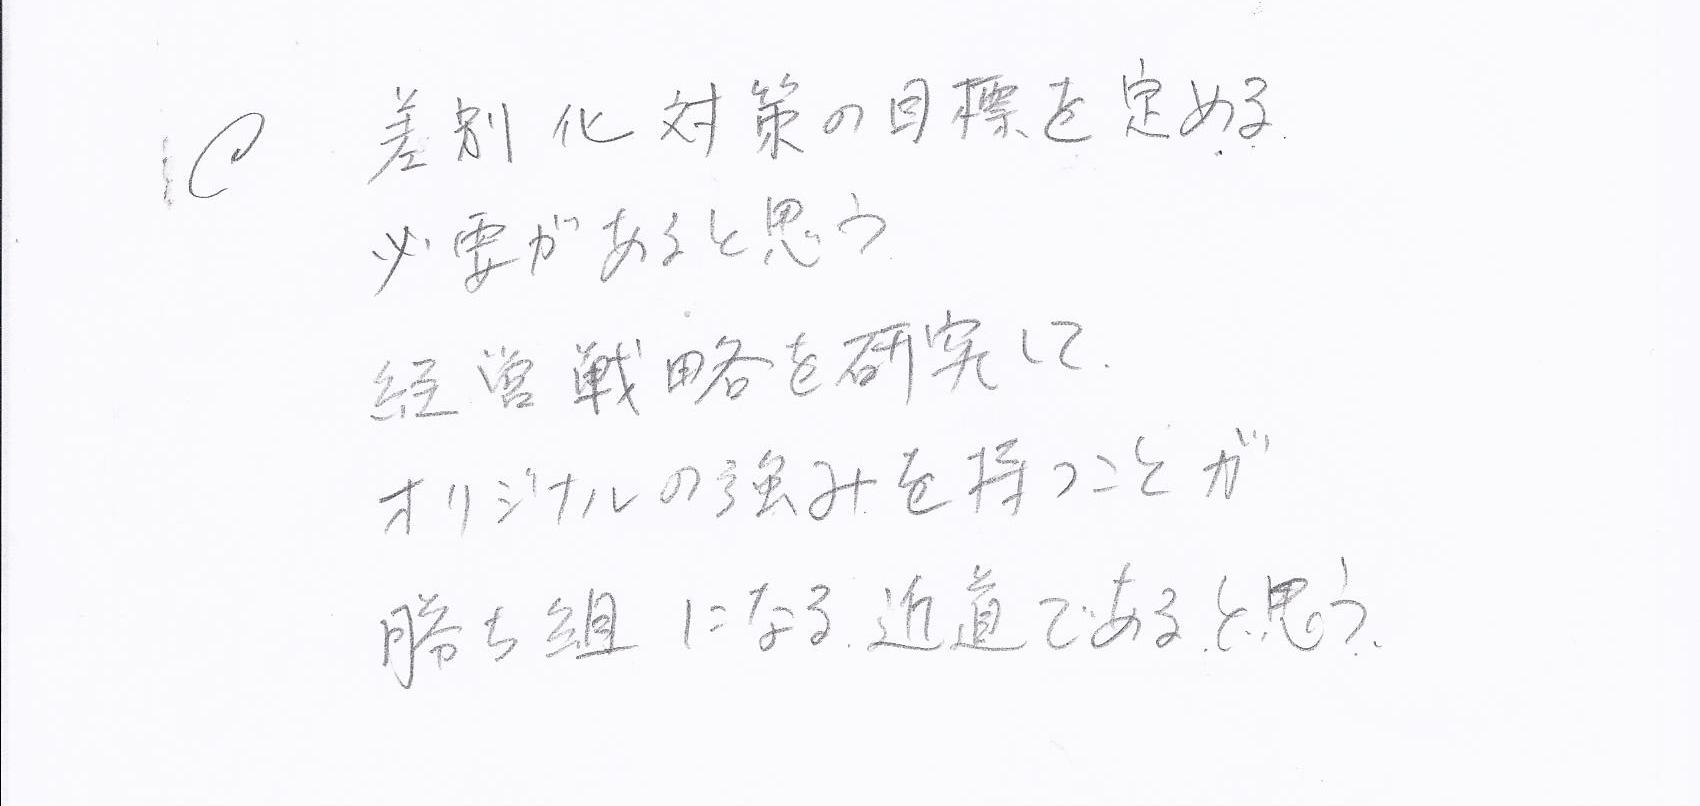 差別化対策の目標を定める
必要があると思う
経営戦略を研究して
オリジナルの強みを持つことが
勝ち組になる近道であると思う